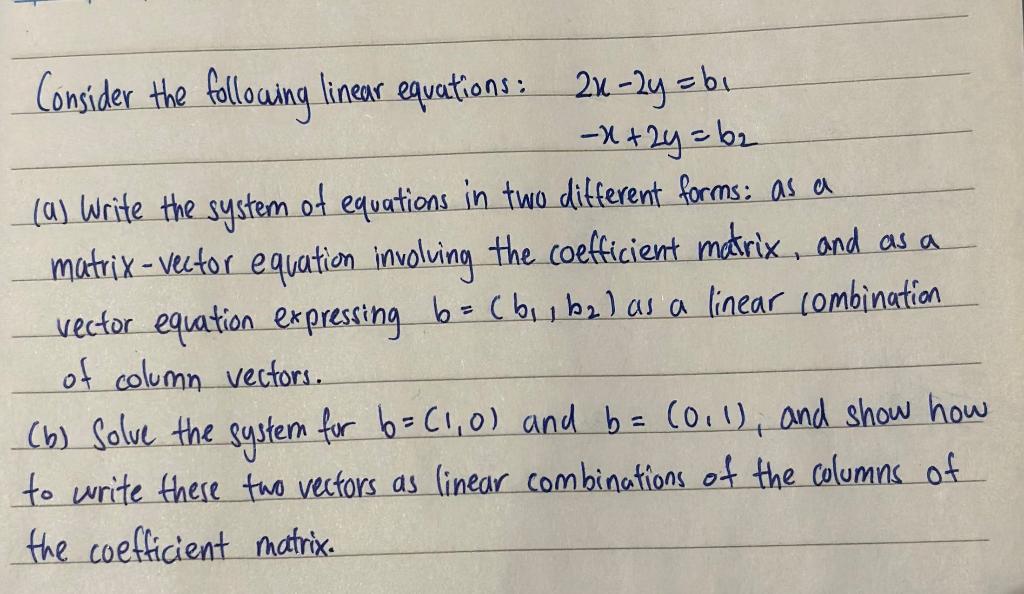 Consider the following linear equations: 2x - 2y = b1
-x + 2y = b2
(a) Write the system of equations in two different forms: as a
matrix-vector equation involving the coefficient matrix, and as a
vector equation expressing b = (b1, b2) as a linear combination
of column vectors.
(b) Solve the system for b = (1,0) and b = (0,1), and show how
to write these two vectors as linear combinations of the columns of
the coefficient matrix.